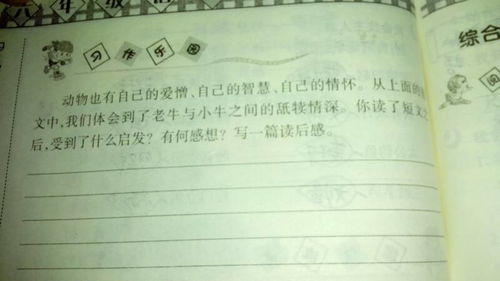 六年级
习作乐园
综合
动物也有自己的爱憎、自己的智慧、自己的情怀。从上面的
文中,我们体会到了老牛与小牛之间的舐犊情深。你读了短文之
后,受到了什么启发?有何感想?写一篇读后感。
阅